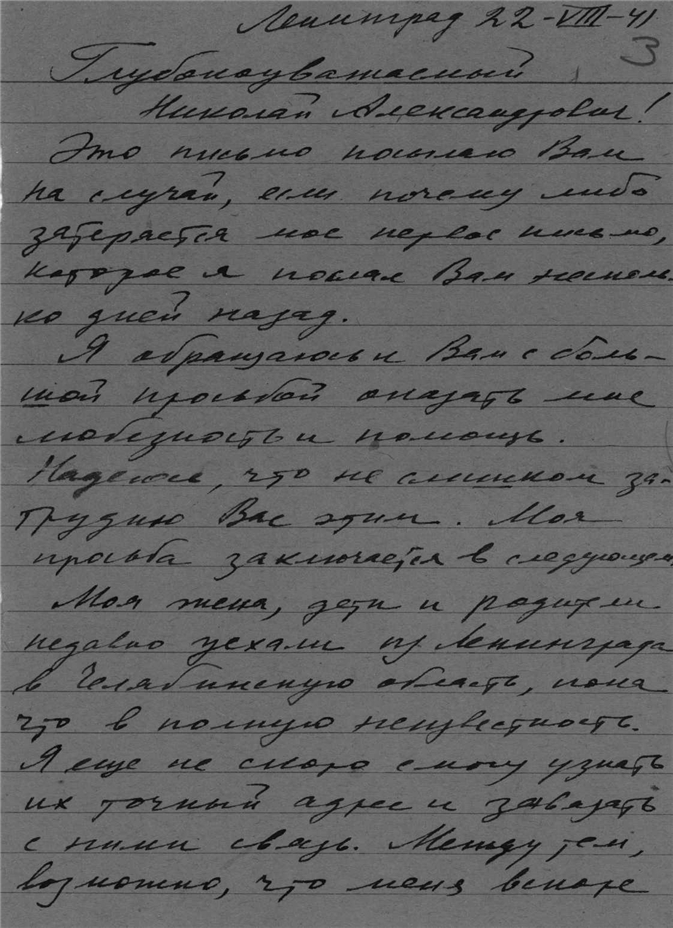 Ленинград 22-VIII-41
3
Глубокоуважаемый
Николай Александрович!
Это письмо посылаю Вам
на случай, если почему либо
затеряется мое первое письмо,
которое я послал Вам несколь-
ко дней назад.
Я обращаюсь к Вам с боль-
шой просьбой оказать мне
любезность и помощь.
Надеюсь, что не слишком за-
трудню Вас этим. Моя
просьба заключается в следующем
Моя жена, дети и родители
недавно уехали из Ленинграда
в Челябинскую область, пока
что в полную неизвестность.
Я еще не скоро смогу узнать
их точный адрес и завязать
с ними связь. Между тем,
возможно, что меня вскоре